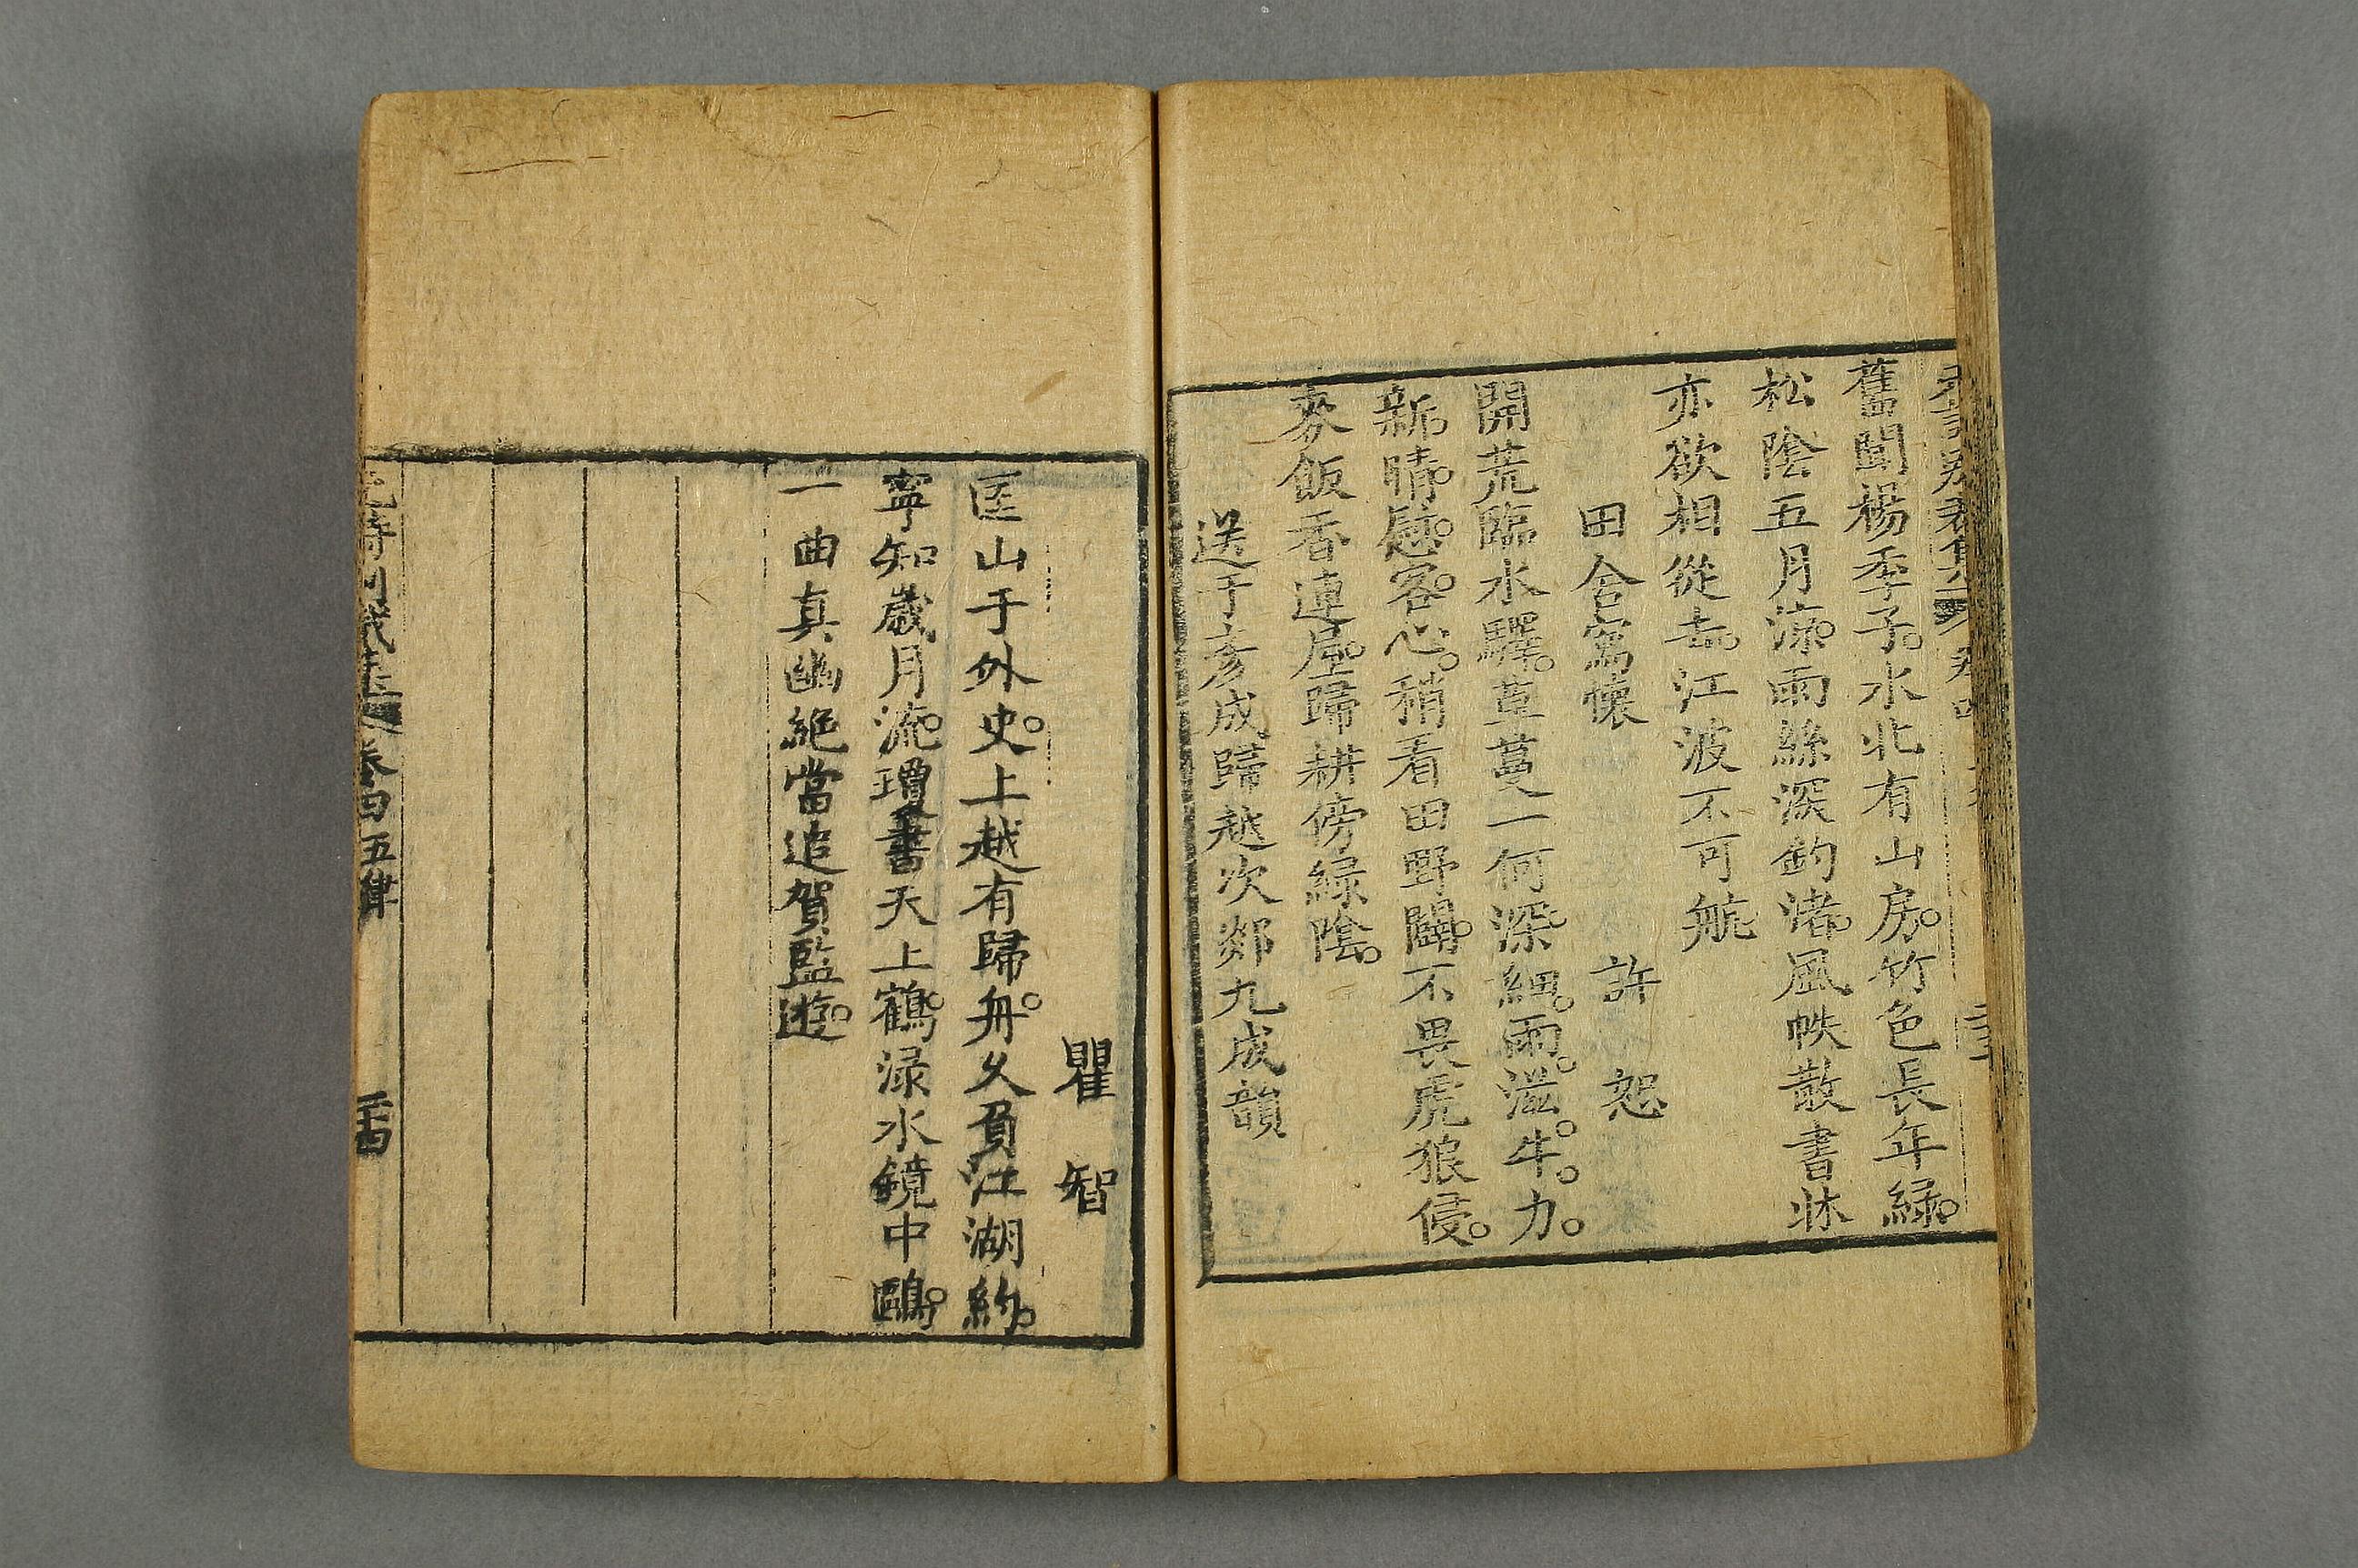 舊聞楊季子水北有山房竹色長年緑
松陰五月涼雨絲深釣渚風帙散書牀
亦欲相從去江波不可航
田舍寓懷
許恕
開荒臨水驛草蔓一何深細雨滋牛力
新晴慰客心稍看田野闢不畏虎狼侵
麥飯香連屋歸耕傍緑陰
送于彥成歸越次郯九成韻
瞿智
匡山于外史上越有歸舟久負江湖約
寧知歲月流瓊書天上鶴渌水鏡中鷗
一曲真幽絕當追賀監遊
卷四五律